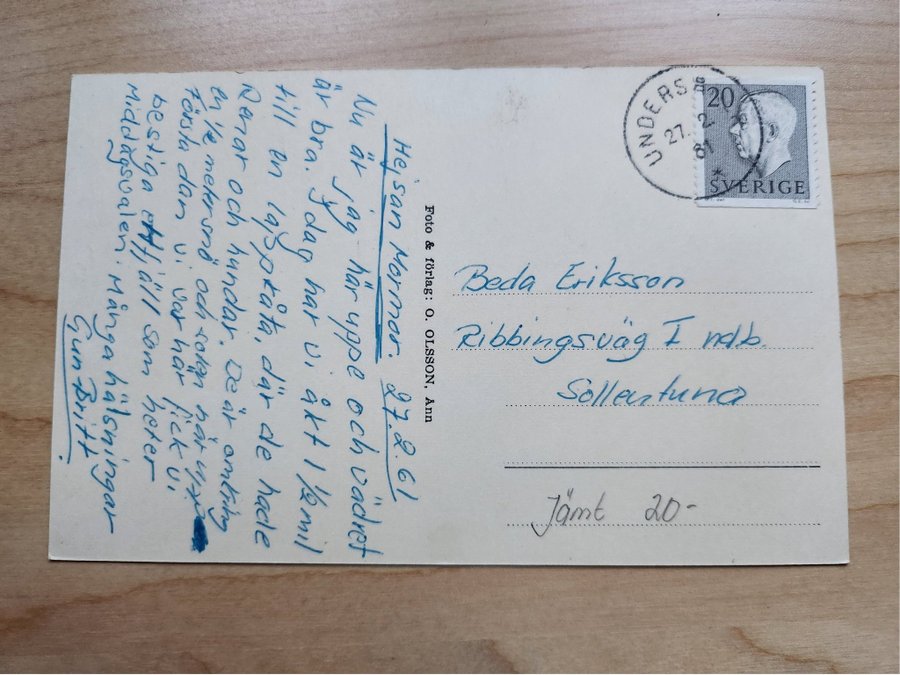 Hejsan Mormor. 27.2.61
Nu är jag här uppe och vädret
är bra. I dag har vi åkt 1/2 mil
till en lappkåta, där de hade
Renar och hundar. De är omkring
en 1/2 meter snö och sedan här uppe
Första dan vi var här fick vi
bestiga ett fjäll som heter
Middagsvalen. Många hälsningar
Gun Britt.
Foto & förlag: O. OLSSON, Ann
UNDERS
27. 2.
61
20
SVERIGE
Beda Eriksson
Ribbingsväg I ndb.
Sollentuna
Jämt 20-